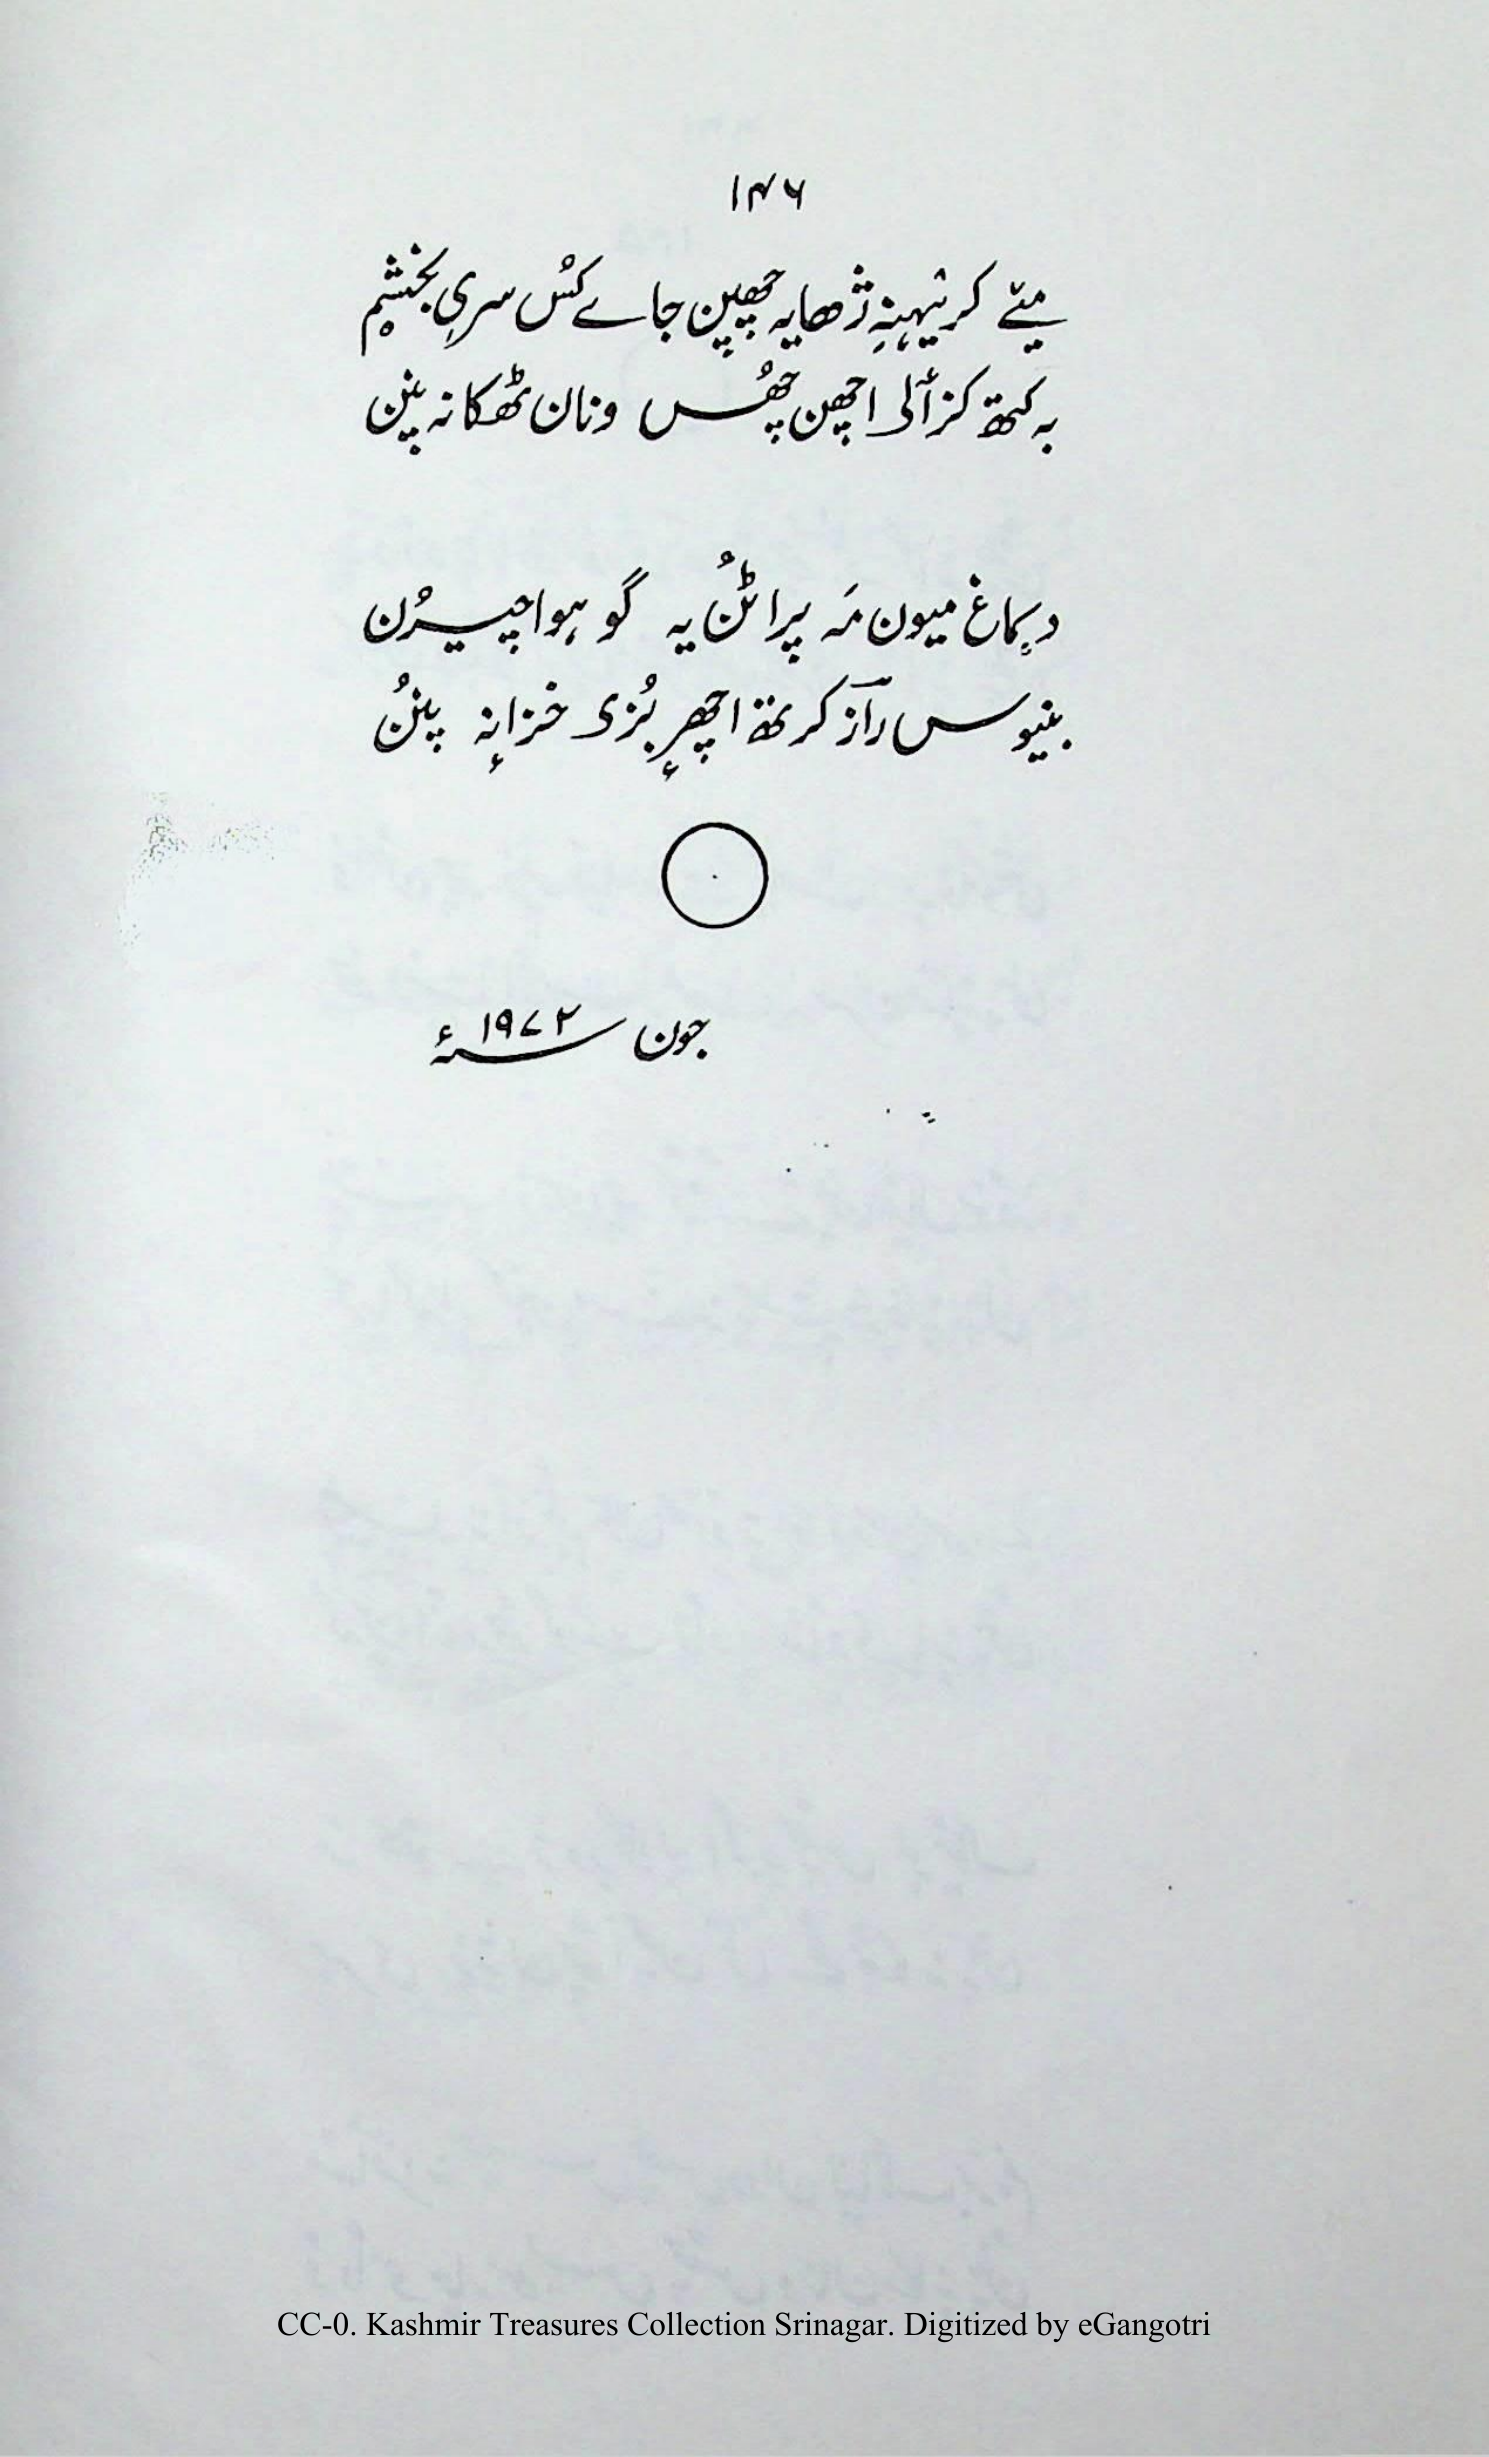 ۱۴۶
میٚے کر تٕہنٛز ژھایہ چھپن جاے کُس سری بخشم
بہ کتھ کز أ لی اچھن چھُس ونان ٹھکانہ پنن
دماغ میون مَہ پراٹُن یہ گو ہوا چیرُن
بنیوس رازٓ کرتھ اچھرٕ بُزی خزانہٕ پننُ
جون ۱۹۷۲ء
CC-0. Kashmir Treasures Collection Srinagar. Digitized by eGangotri